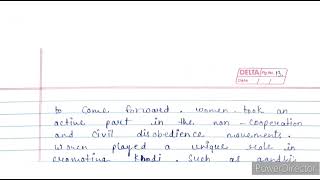 DELTA Pg No. 12
Date / /
to come forward. women took an
active part in the non-cooperation
and civil disobedience movements.
Women played a unique role in
promoting khadi. Such as gandhi
PowerDirector